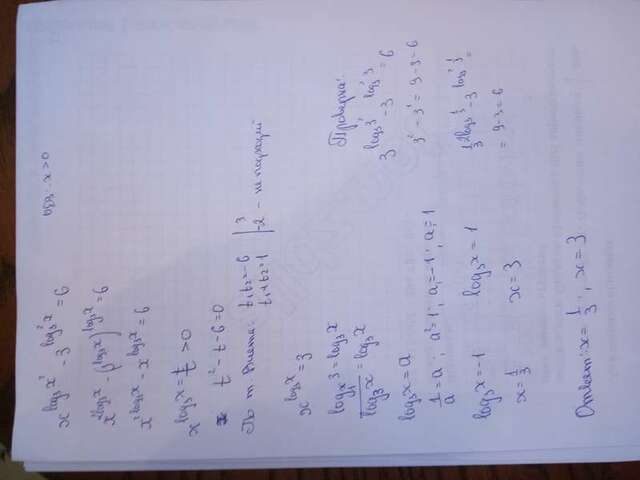 x^{log_3 x^2} - 3^{log_3^2 x} = 6        ОДЗ: x > 0
x^{2log_3 x} - (3^{log_3 x})^{log_3 x} = 6
x^{2log_3 x} - x^{log_3 x} = 6
x^{log_3 x} = t > 0
t^2 - t - 6 = 0
По т. Виета: t_1 t_2 = -6 | 3
t_1 + t_2 = 1 | -2 - не подходит
x^{log_3 x} = 3
log_x 3 = log_3 x
1/log_3 x = log_3 x
log_3 x = a
1/a = a ; a^2 = 1 ; a_1 = -1 ; a_2 = 1
log_3 x = -1        log_3 x = 1
x = 1/3        x = 3
Ответ: x = 1/3 ; x = 3
Проверка:
= 6
3^2 - 3^1 = 9 - 3 = 6
= 9 - 3 = 6